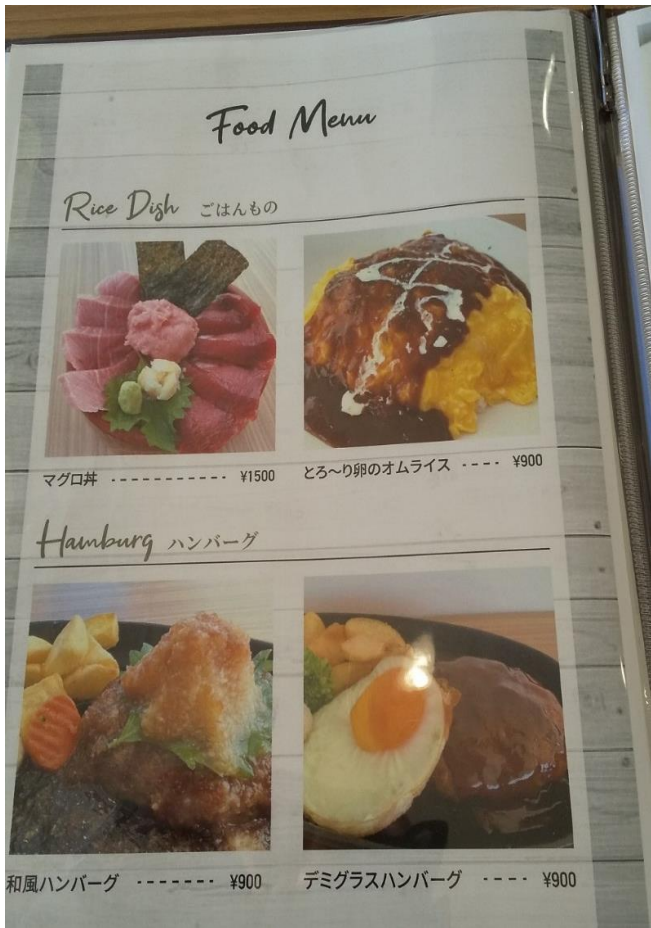 Food Menu
Rice Dish ごはんもの
マグロ丼 ----------- ¥1500
とろ〜り卵のオムライス ---- ¥900
Hamburg ハンバーグ
和風ハンバーグ ------- ¥900
デミグラスハンバーグ ---- ¥900